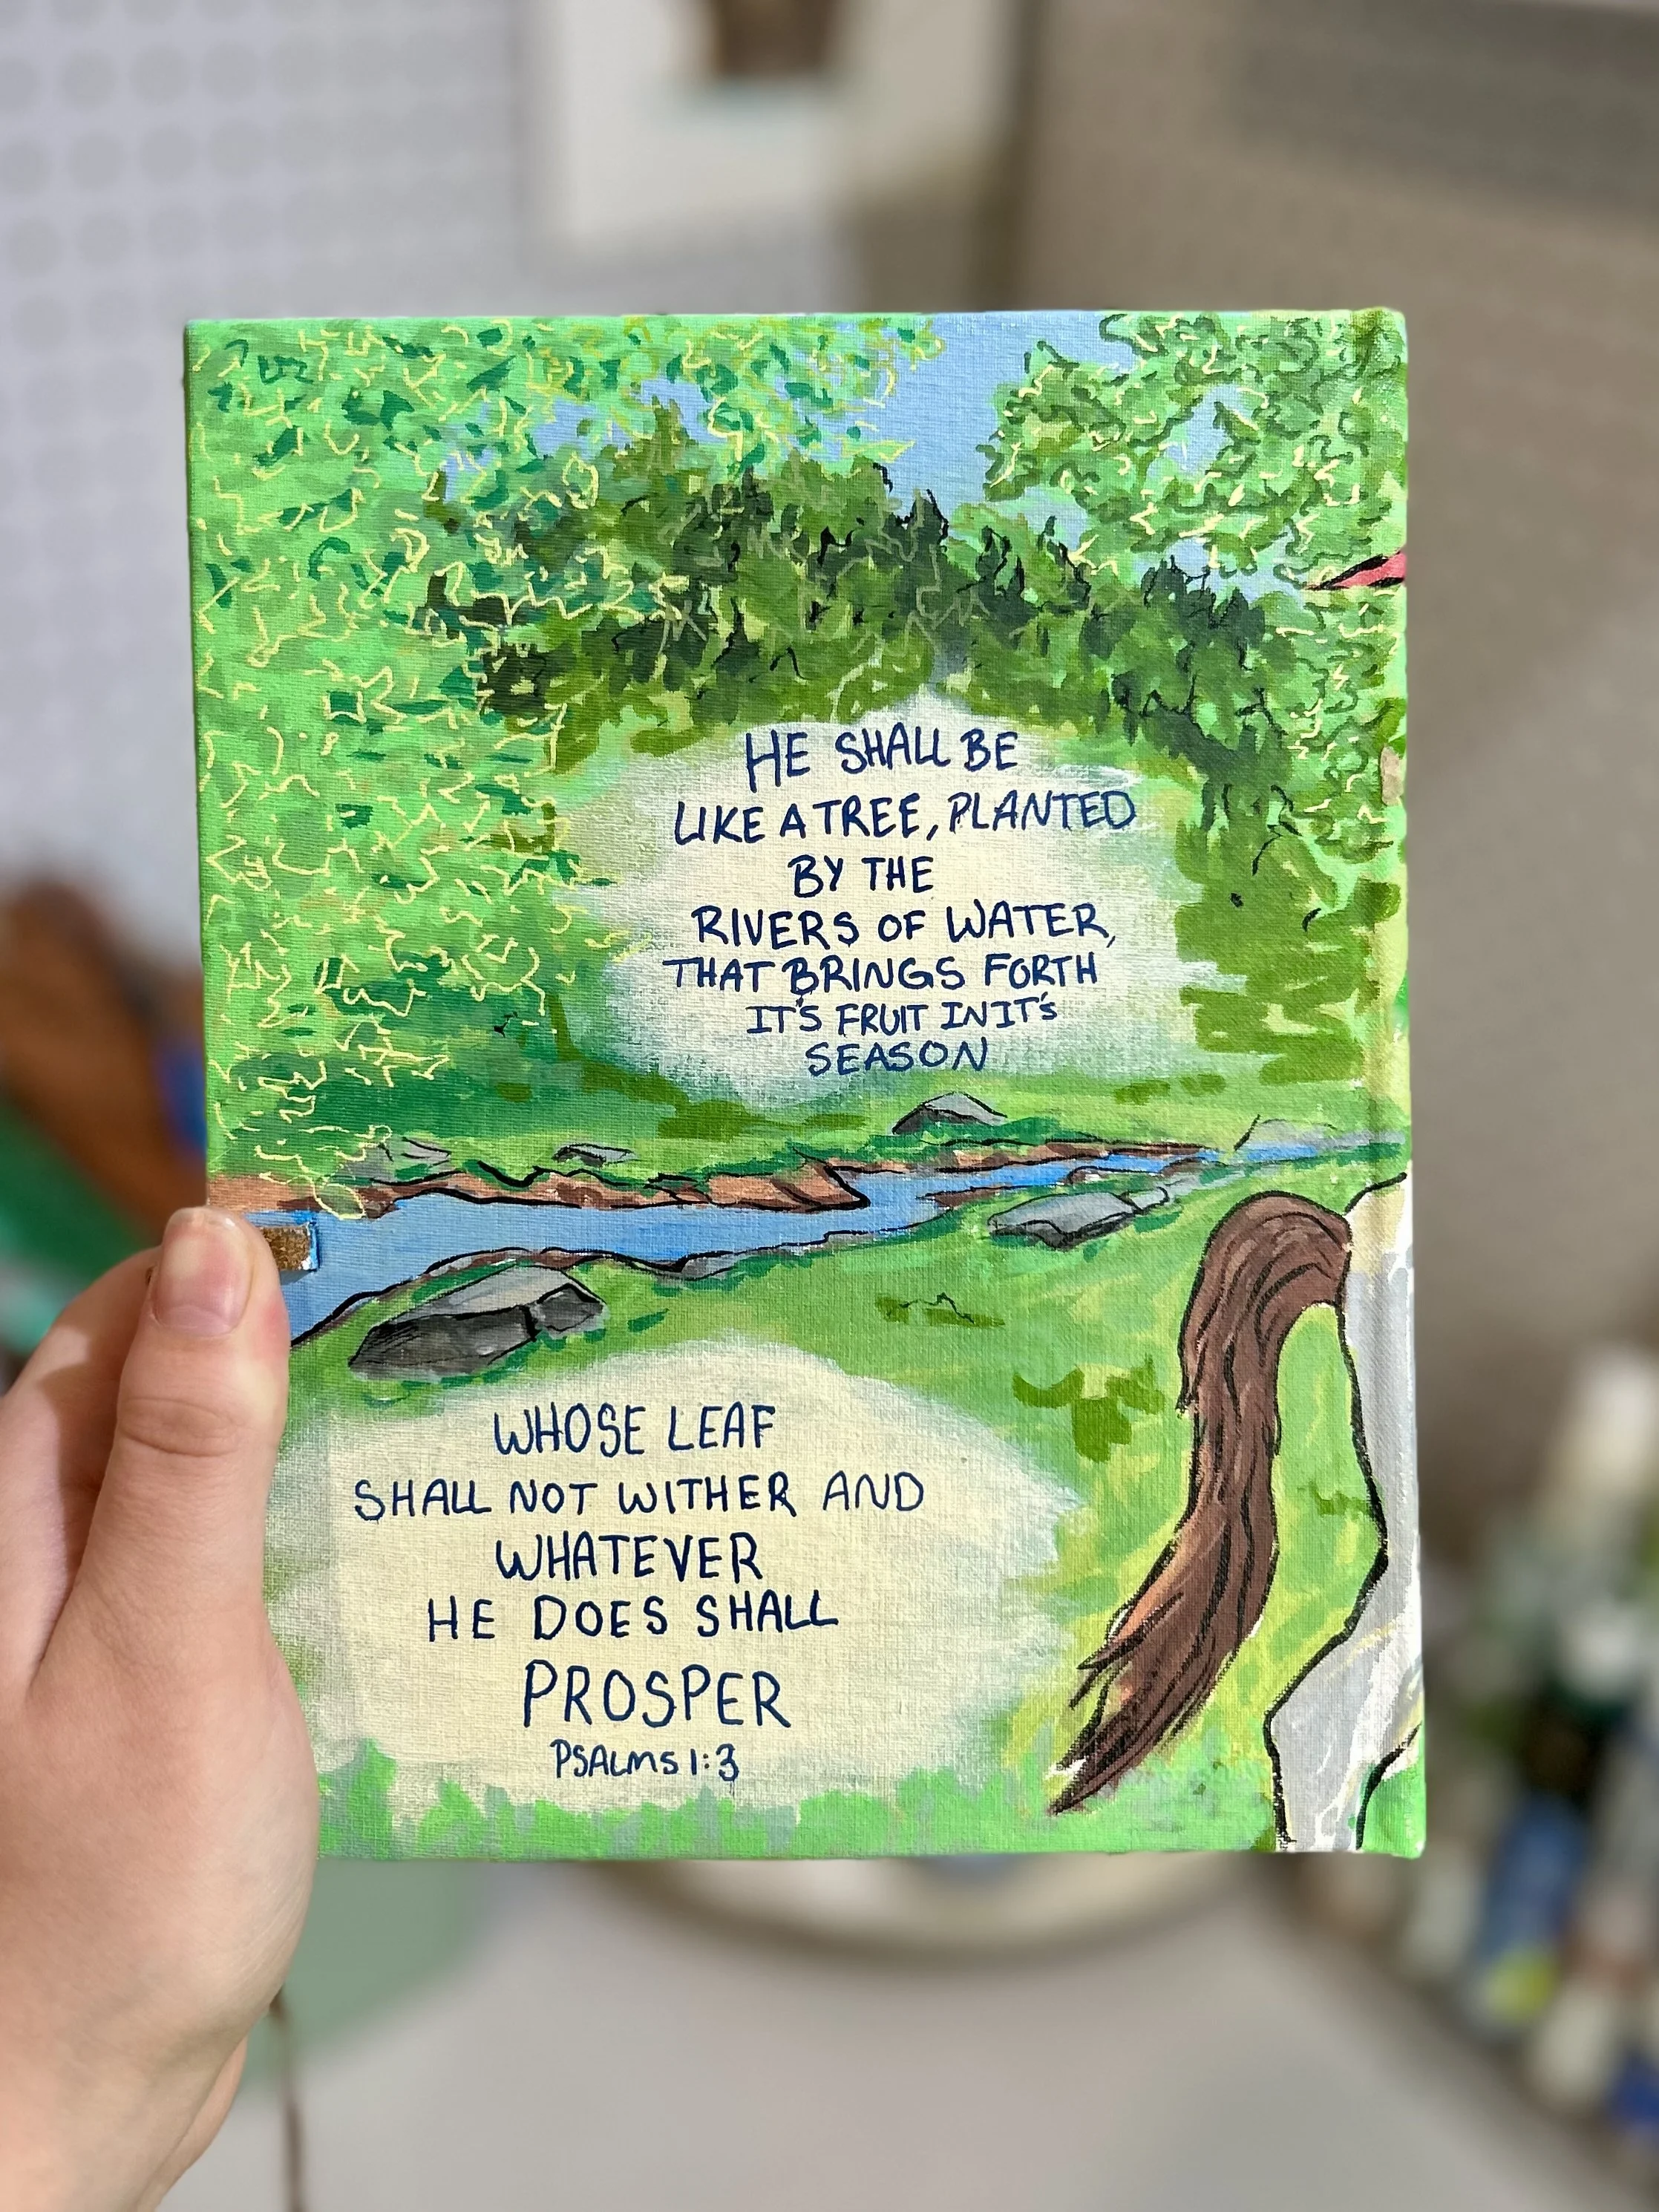 HE SHALL BE
LIKE A TREE, PLANTED
BY THE
RIVERS OF WATER,
THAT BRINGS FORTH
IT'S FRUIT IN IT'S
SEASON
WHOSE LEAF
SHALL NOT WITHER AND
WHATEVER
HE DOES SHALL
PROSPER
PSALMS 1:3